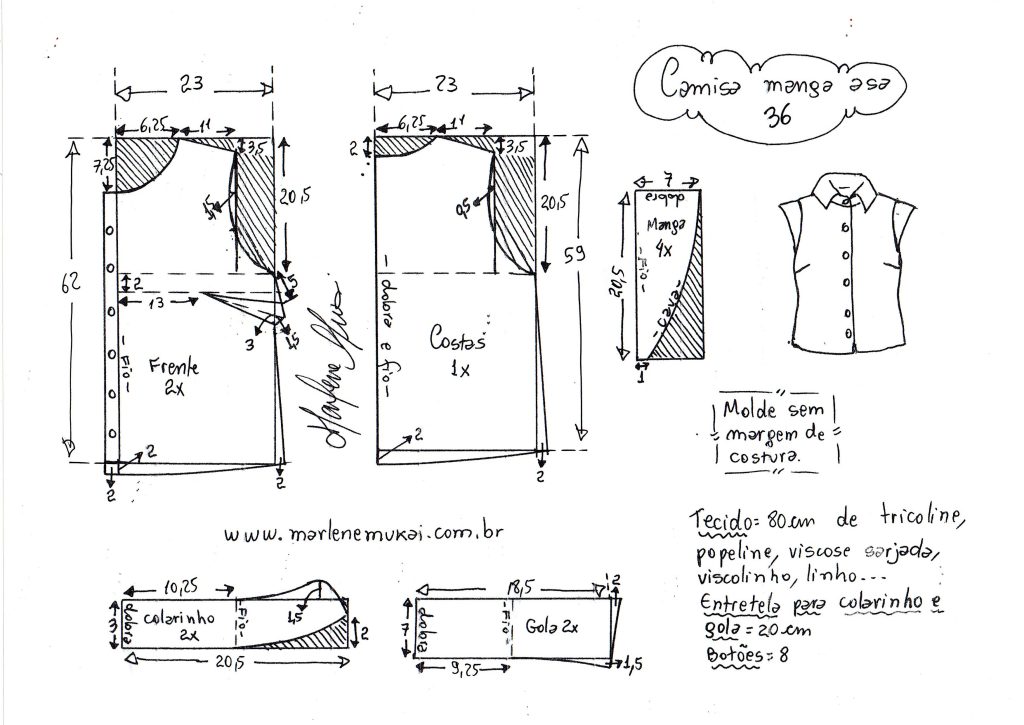 Camisa manga asa
36
23
6,25
11
3,5
7,25
1,5
20,5
62
2
13
1,5
3
1,5
Fio
Frente
2x
2
2
2
Marlene Mukai
23
6,25
11
2
3,5
0,5
20,5
59
dobra e fio
Costas
1x
2
2
7
dobra
Manga
4x
Fio
cava
20,5
1
Molde sem
margem de
costura.
www.marlenemukai.com.br
10,25
3
dobra
colarinho
2x
Fio
1,5
2
20,5
18,5
2
7
dobra
Fio
Gola 2x
9,25
1,5
Tecido = 80cm de tricoline,
popeline, viscose sarjada,
viscolinho, linho...
Entretela para colarinho e
gola = 20cm
Botões = 8